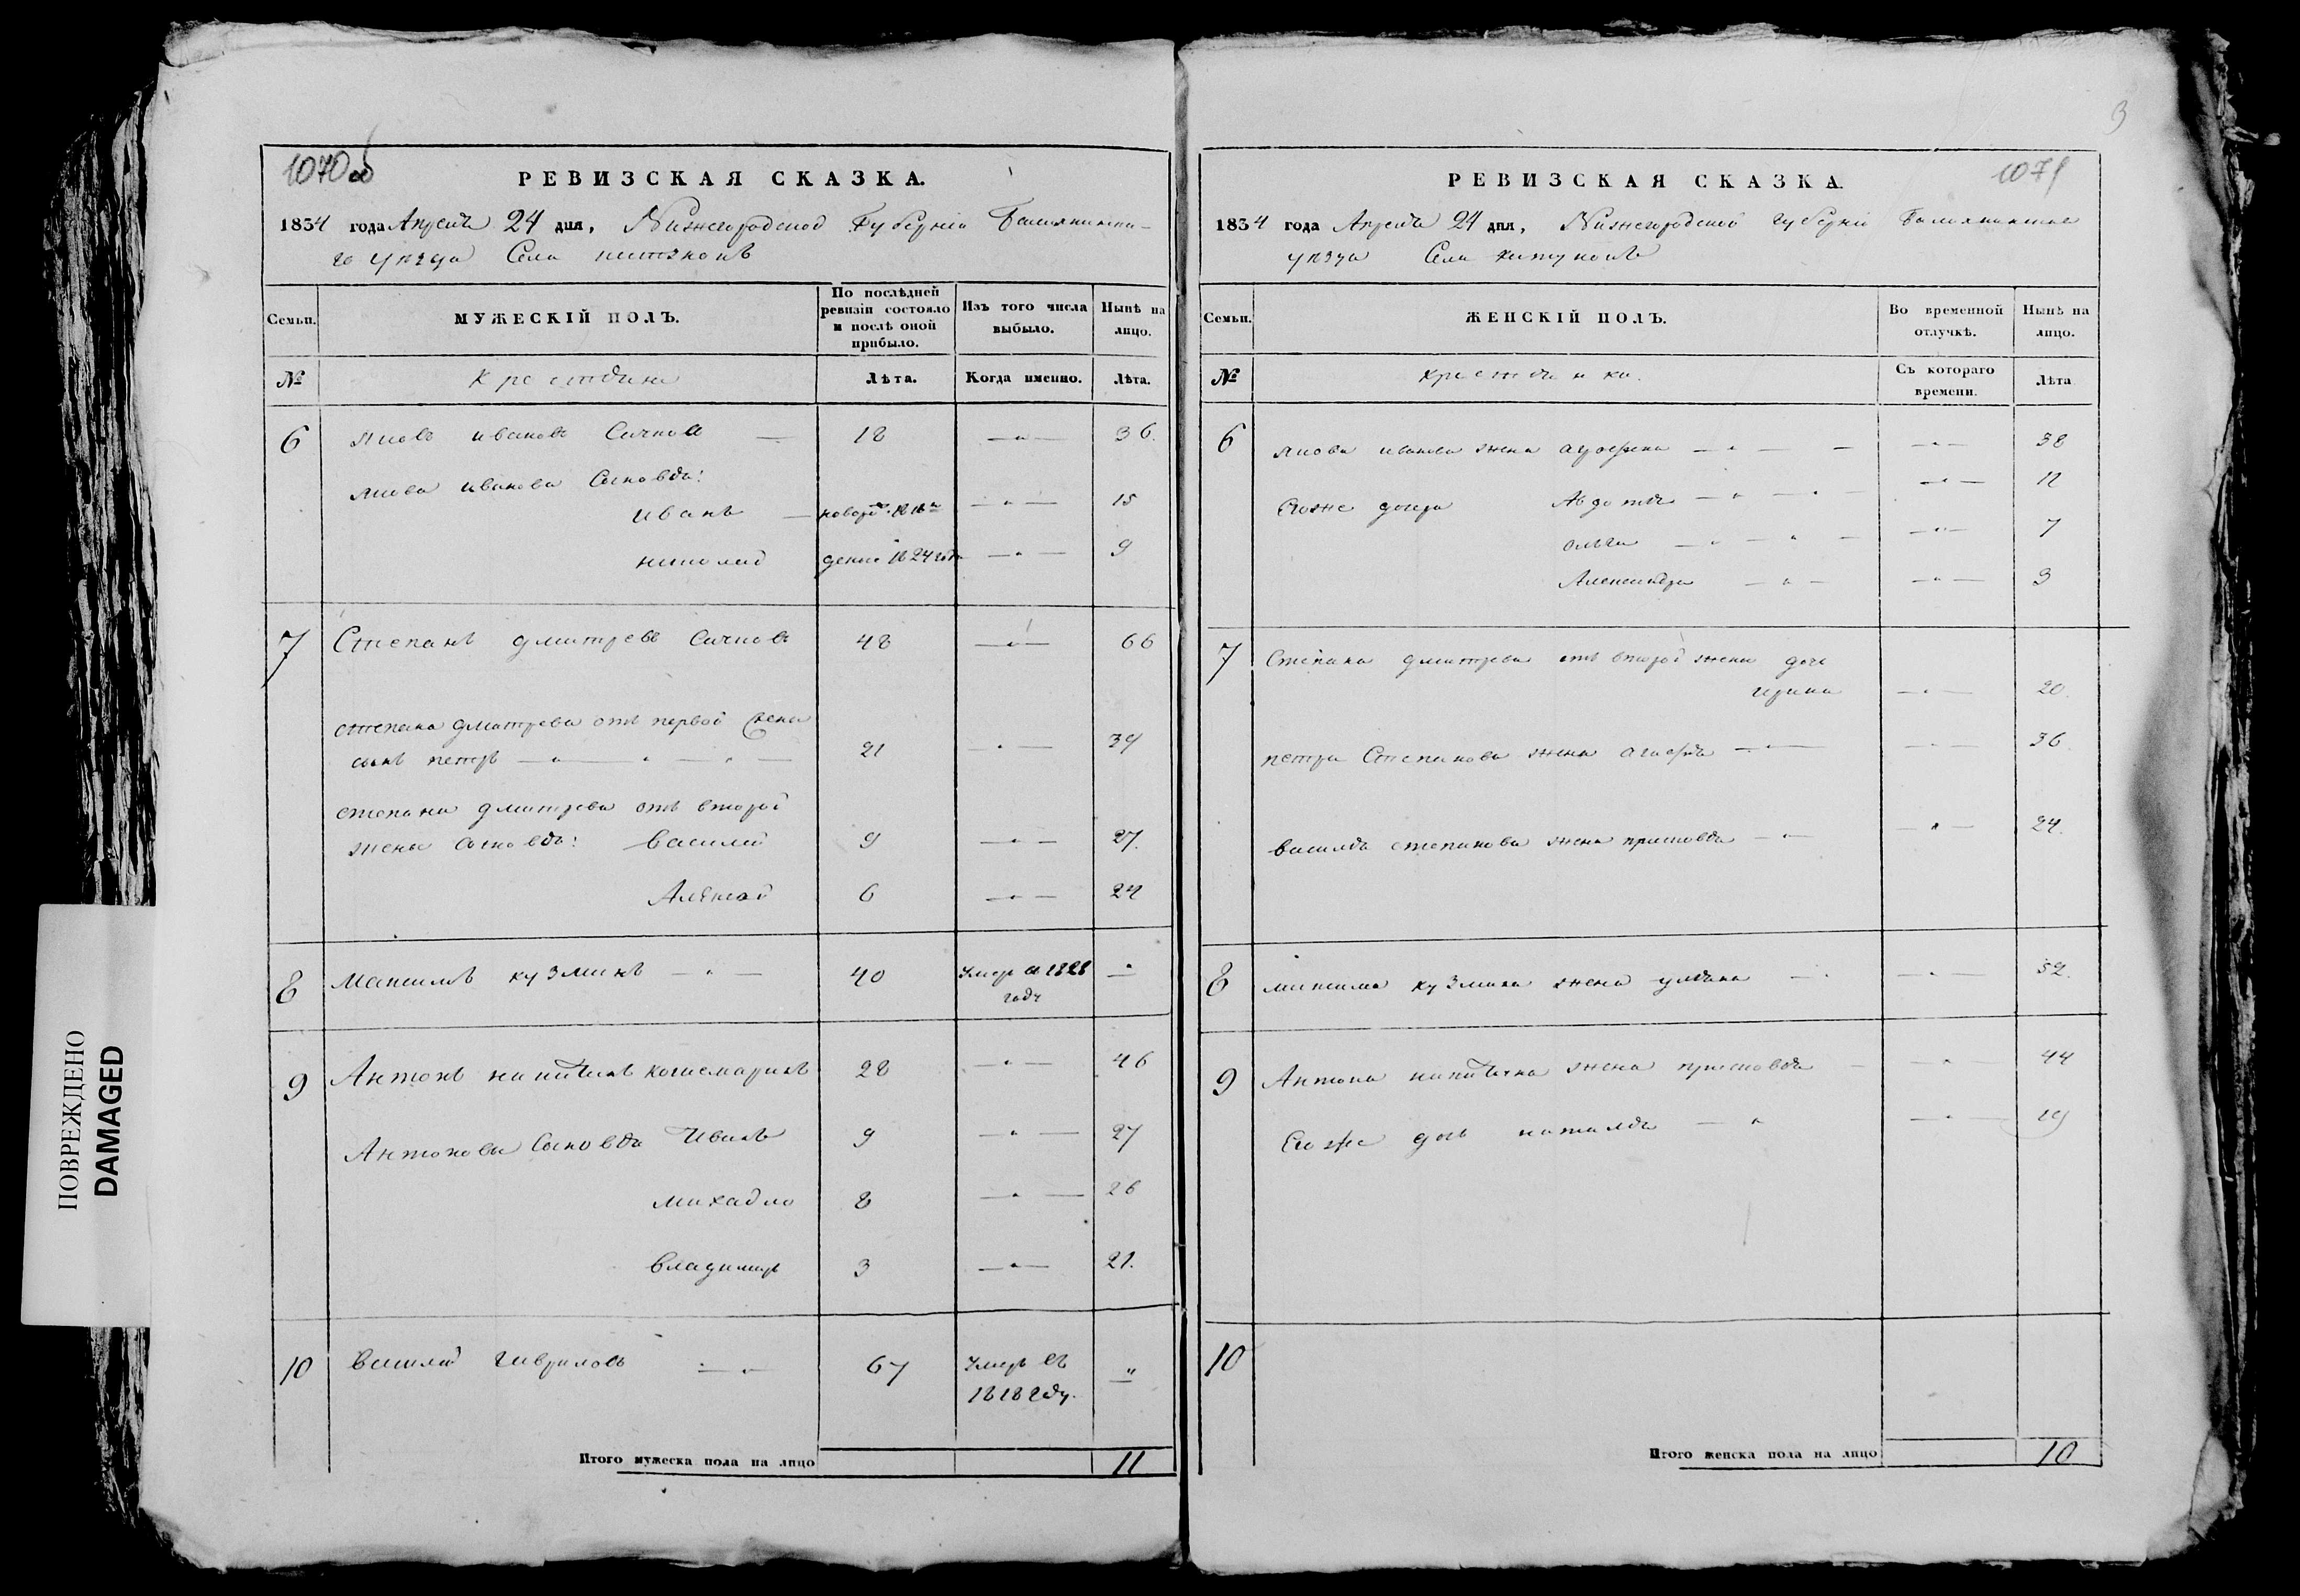 1070 об
РЕВИЗСКАЯ СКАЗКА.
1834 года Апреля 24 дня, Нижегородской Губернии
го уезда Села
Семьи. МУЖЕСКІЙ ПОЛЪ. По послѣдней ревизіи состояло и послѣ оной прибыло. Изъ того числа выбыло. Нынѣ на лицо.
№ Крестьяне Лѣта. Когда именно. Лѣта.
6 Яковъ ивановъ Сычковъ 18 — " — 36.
Якова иванова Сыновья:
иванъ — — " — 15
николай 1824 года — " — 9
7 Степанъ дмитревъ Сычковъ 48 — " — 66
степана дмитрева отъ первой жены
сынъ петръ — " " — " — 21 — " — 39
степана дмитрева отъ второй
жены сыновья: Василей 9 — " — 27.
Алексей 6 — " — 24
8 Максимъ кузминъ — " — 40 Умеръ въ 1828 —"
году
9 Антонъ никитинъ 28 — " — 46
Антоновы Сыновья Иванъ 9 — " — 27
михайло 8 — " — 26
Владимиръ 3 — " — 21.
10 Василей гавриловъ — " — 67 Умеръ въ "
1818 году.
Итого мужеска пола на лицо 11
3
1071
РЕВИЗСКАЯ СКАЗКА.
1834 года Апреля 24 дня, Нижегородской губерніи
уезда Села
Семьи. ЖЕНСКІЙ ПОЛЪ. Во временной отлучкѣ. Нынѣ на лицо.
№ крестьянки. Съ котораго времени. Лѣта
6 Якова иванова жена — " — — — " — 38
Егоже дочери Авдотья — " — " — — " — 12
ольга — " — " — — " — 7
Александра — " — — " — 3
7 Степана дмитрева отъ второй жены дочь
ирина — " — 20.
петра Степанова жена — " — — " — 36.
василья степанова жена прасковья — " — — " — 24.
8 максима кузмина жена ульяна — " — " — 52.
9 Антона никитина жена прасковья — — " — 44
Егоже дочь наталья — " — " — 19
10
Итого женска пола на лицо 10
ПОВРЕЖДЕНО
DAMAGED